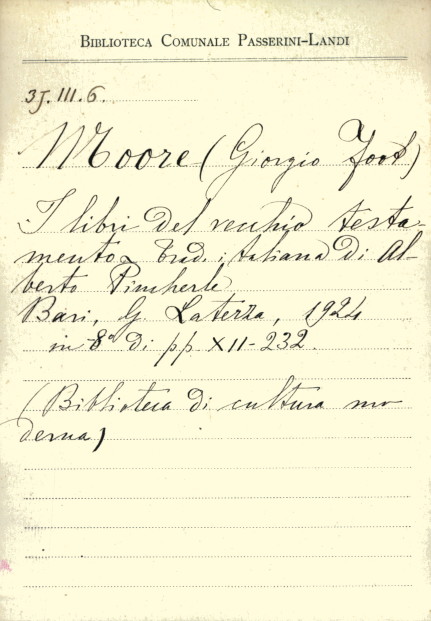 BIBLIOTECA COMUNALE PASSERINI-LANDI
3J.III.6.
Moore (Giorgio Foot)
I libri del vecchio testa-
mento. Trad. italiana di Al-
berto Pincherle
Bari, G. Laterza, 1924
in-8° di pp. XII-232.
(Biblioteca di cultura mo
derna)